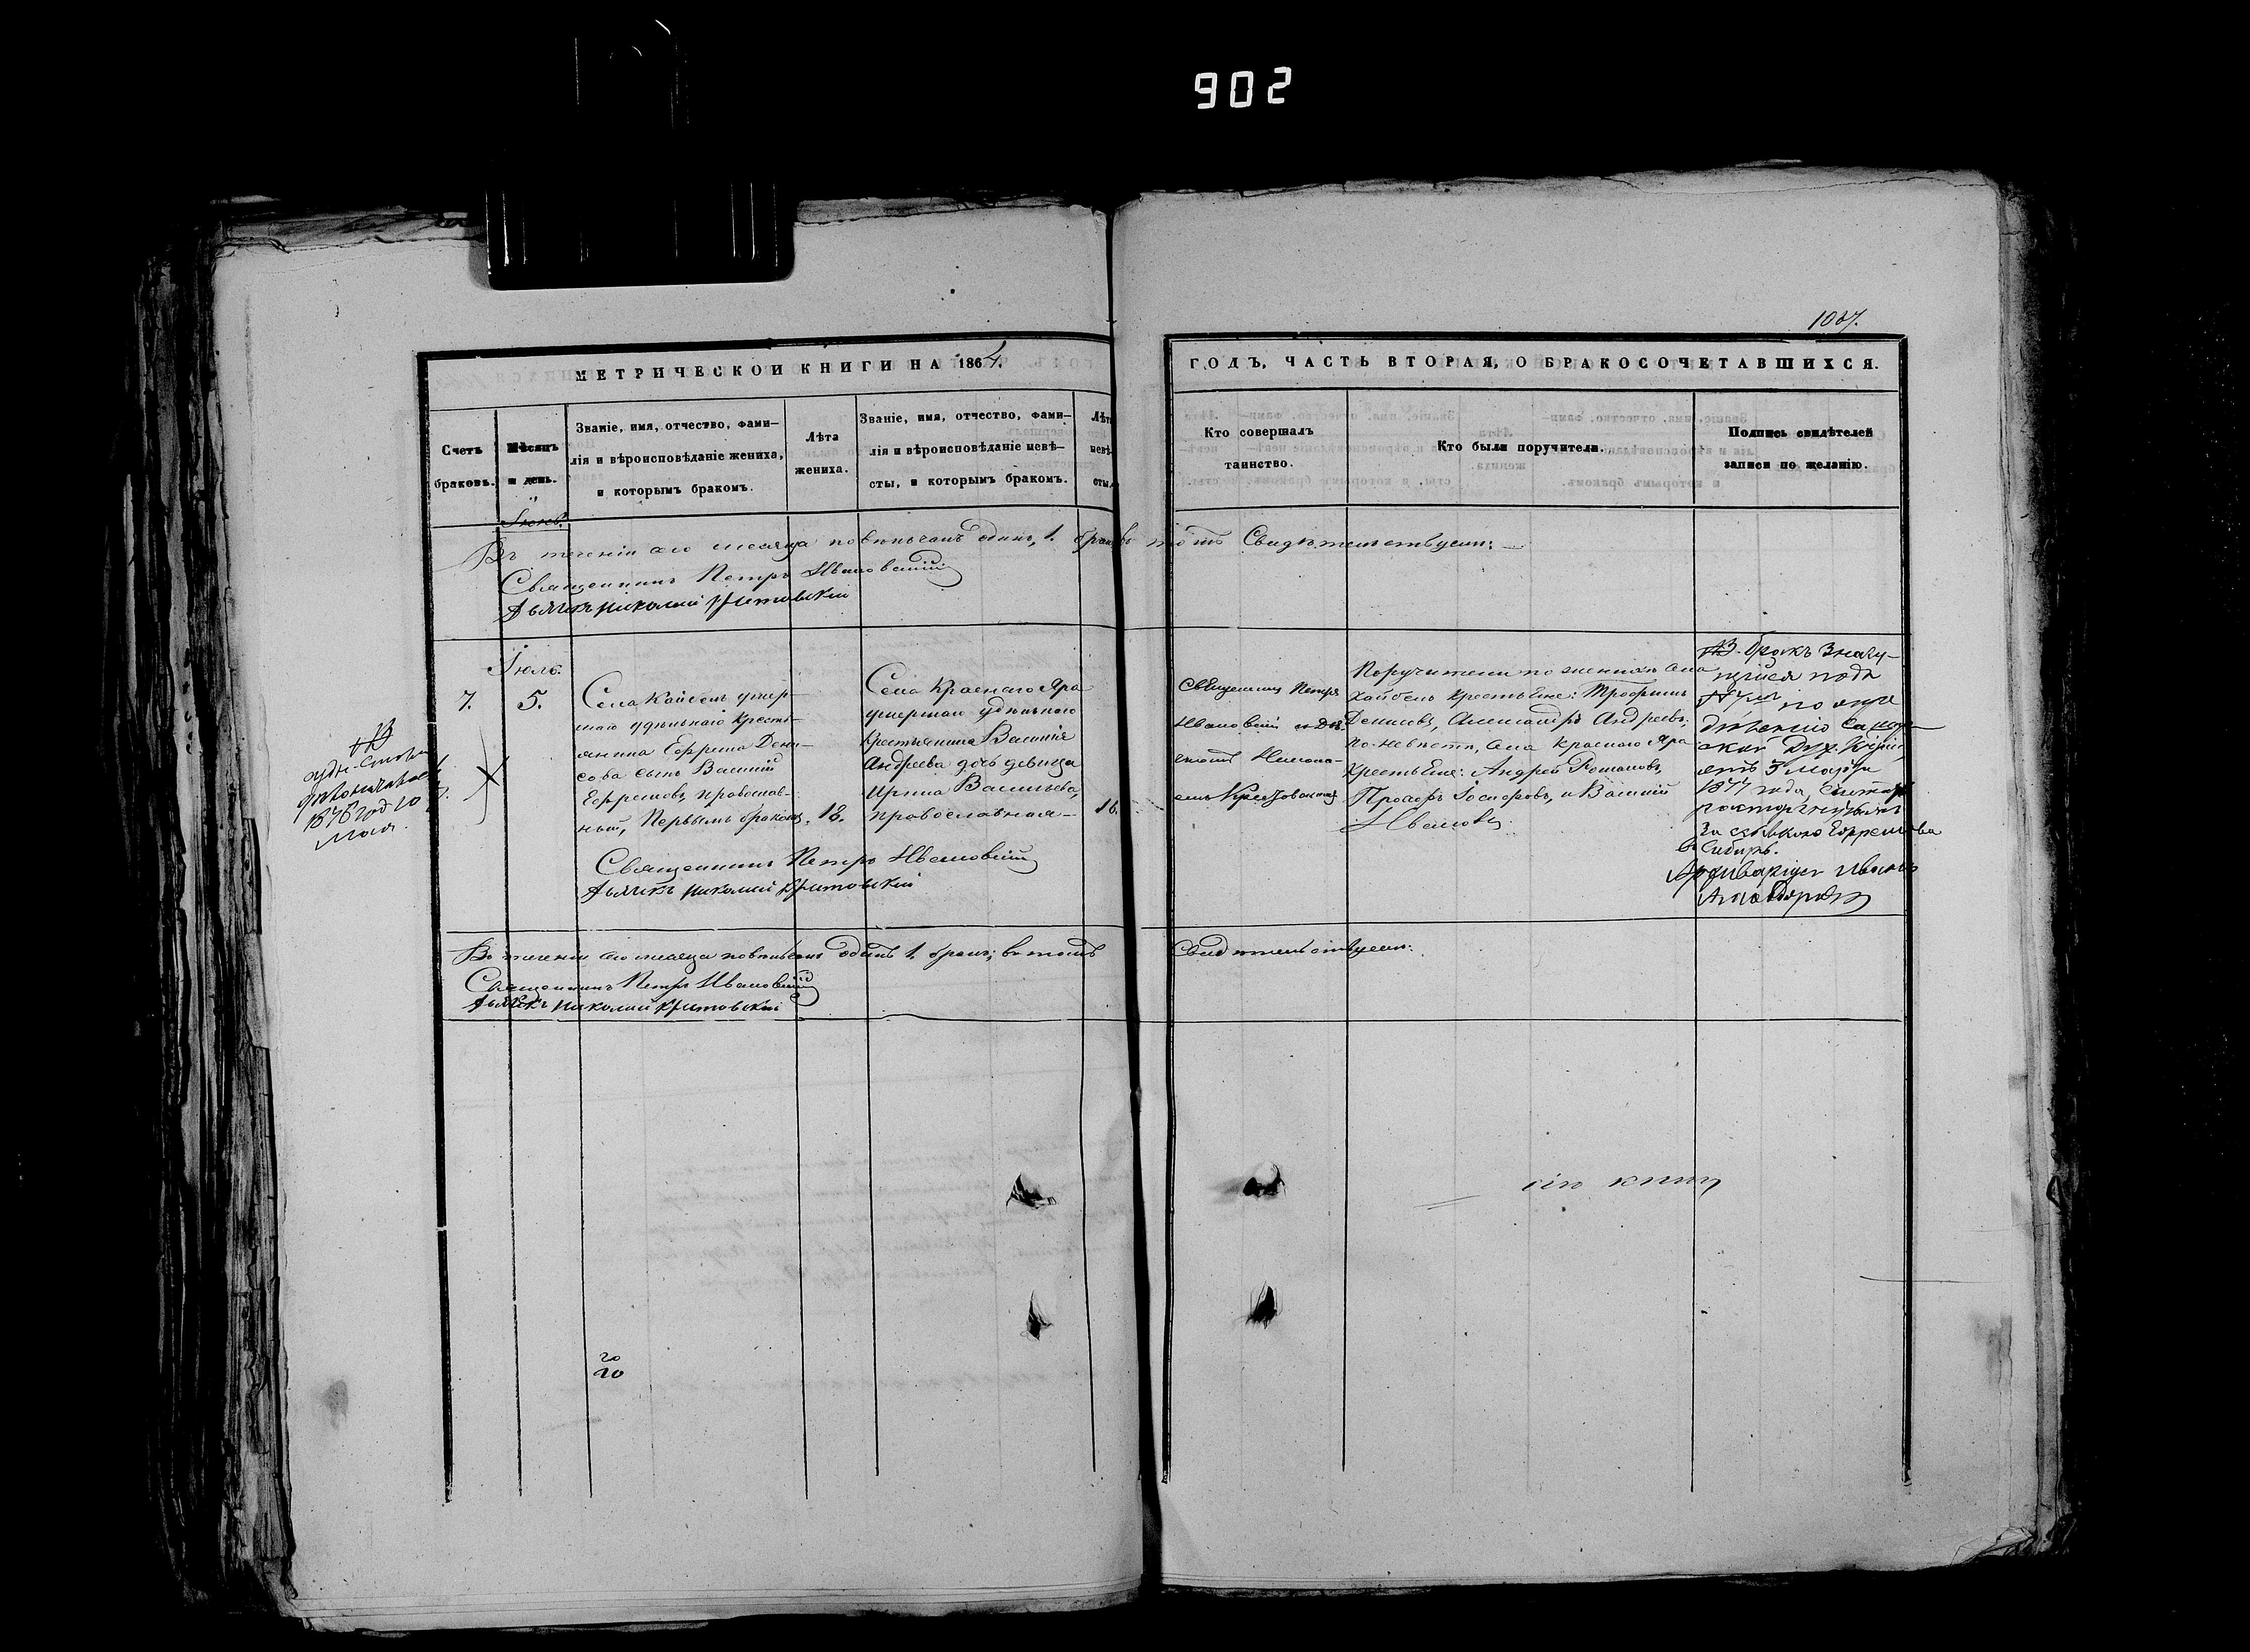 902
1087.
МЕТРИЧЕСКОЙ КНИГИ НА 1864.
ГОДЪ, ЧАСТЬ ВТОРАЯ, О БРАКОСОЧЕТАВШИХСЯ.
Счетъ
браковъ.
Мѣсяцъ
и день.
Званіе, имя, отчество, фами-
лія и вѣроисповѣданіе жениха,
и которымъ бракомъ.
Лѣта
жениха.
Званіе, имя, отчество, фами-
лія и вѣроисповѣданіе невѣ-
сты, и которымъ бракомъ.
Лѣта
невѣ-
сты.
Кто совершалъ
таинство.
Кто были поручители.
Подпись свидѣтелей
записи по желанію.
Въ теченіи сего месяца повѣнчанъ одинъ, 1. бракъ въ томъ Свидѣтельствуемъ:
Священникъ Петръ Ивановскій
Дьячекъ Николай
Іюль.
7.
5.
Села Кайбелъ умер-
шаго удѣльнаго кресть-
янина Ефрема Дени-
сова сынъ Василій
Ефремовъ, православ-
ный, Первымъ бракомъ.
18.
Села Краснаго Яра
умершаго удѣльнаго
Крестьянина Василія
Андреева дочь девица
Ирина Васильева,
православная
16.
Священникъ Петръ
Ивановскій и Дья-
чекъ Никола-
Поручители по женихѣ села
Кайбелъ крестьяне: Трофимъ
Денисовъ, Александръ Андреевъ;
по невѣстѣ, села Краснаго Яра
крестьяне: Андрей Романовъ,
Прокофъ Іосифовъ, и Василій
Ивановъ
NB. бракъ Значу-
щійся подъ
N 7мъ по опре
дѣленію Самар-
ской Дух. Кон
отъ 3 Марта
1877 года, считать
расторгнутымъ
за ссылкою Ефремова
въ Сибирь.
Архиваріусъ Иванъ
NB
1878 год 20
мая.
Священникъ Петръ Ивановскій
Дьячекъ Николай
Въ теченіи сего месяца повѣнчанъ одинъ 1. бракъ; въ томъ Свидетельствуемъ:
Священникъ Петръ Ивановскій
Дьячекъ Николай
сію книгу
20